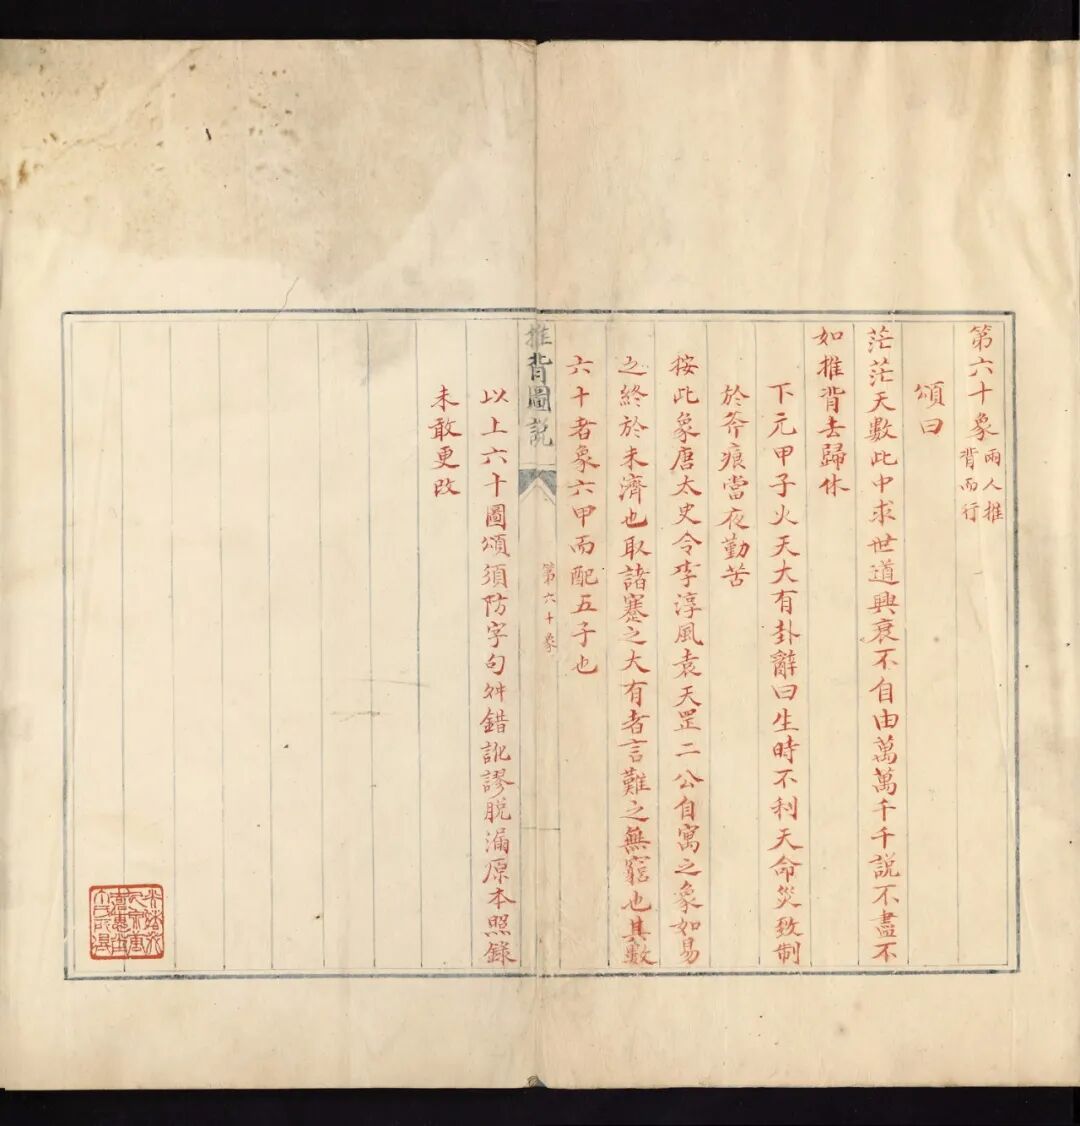 第六十象 兩人推
背而行
頌曰
茫茫天數此中求世道興衰不自由萬萬千千說不盡不
如推背去歸休
下元甲子火天大有卦辭曰生時不利天命災致制
於斧痕當夜勤苦
按此象唐太史令李淳風袁天罡二公自寓之象如易
之終於未濟也取諸蹇之大有者言難之無窮也其數
六十者象六甲而配五子也
推背圖說
第六十象
以上六十圖頌須防字句舛錯訛謬脫漏原本照錄
未敢更改